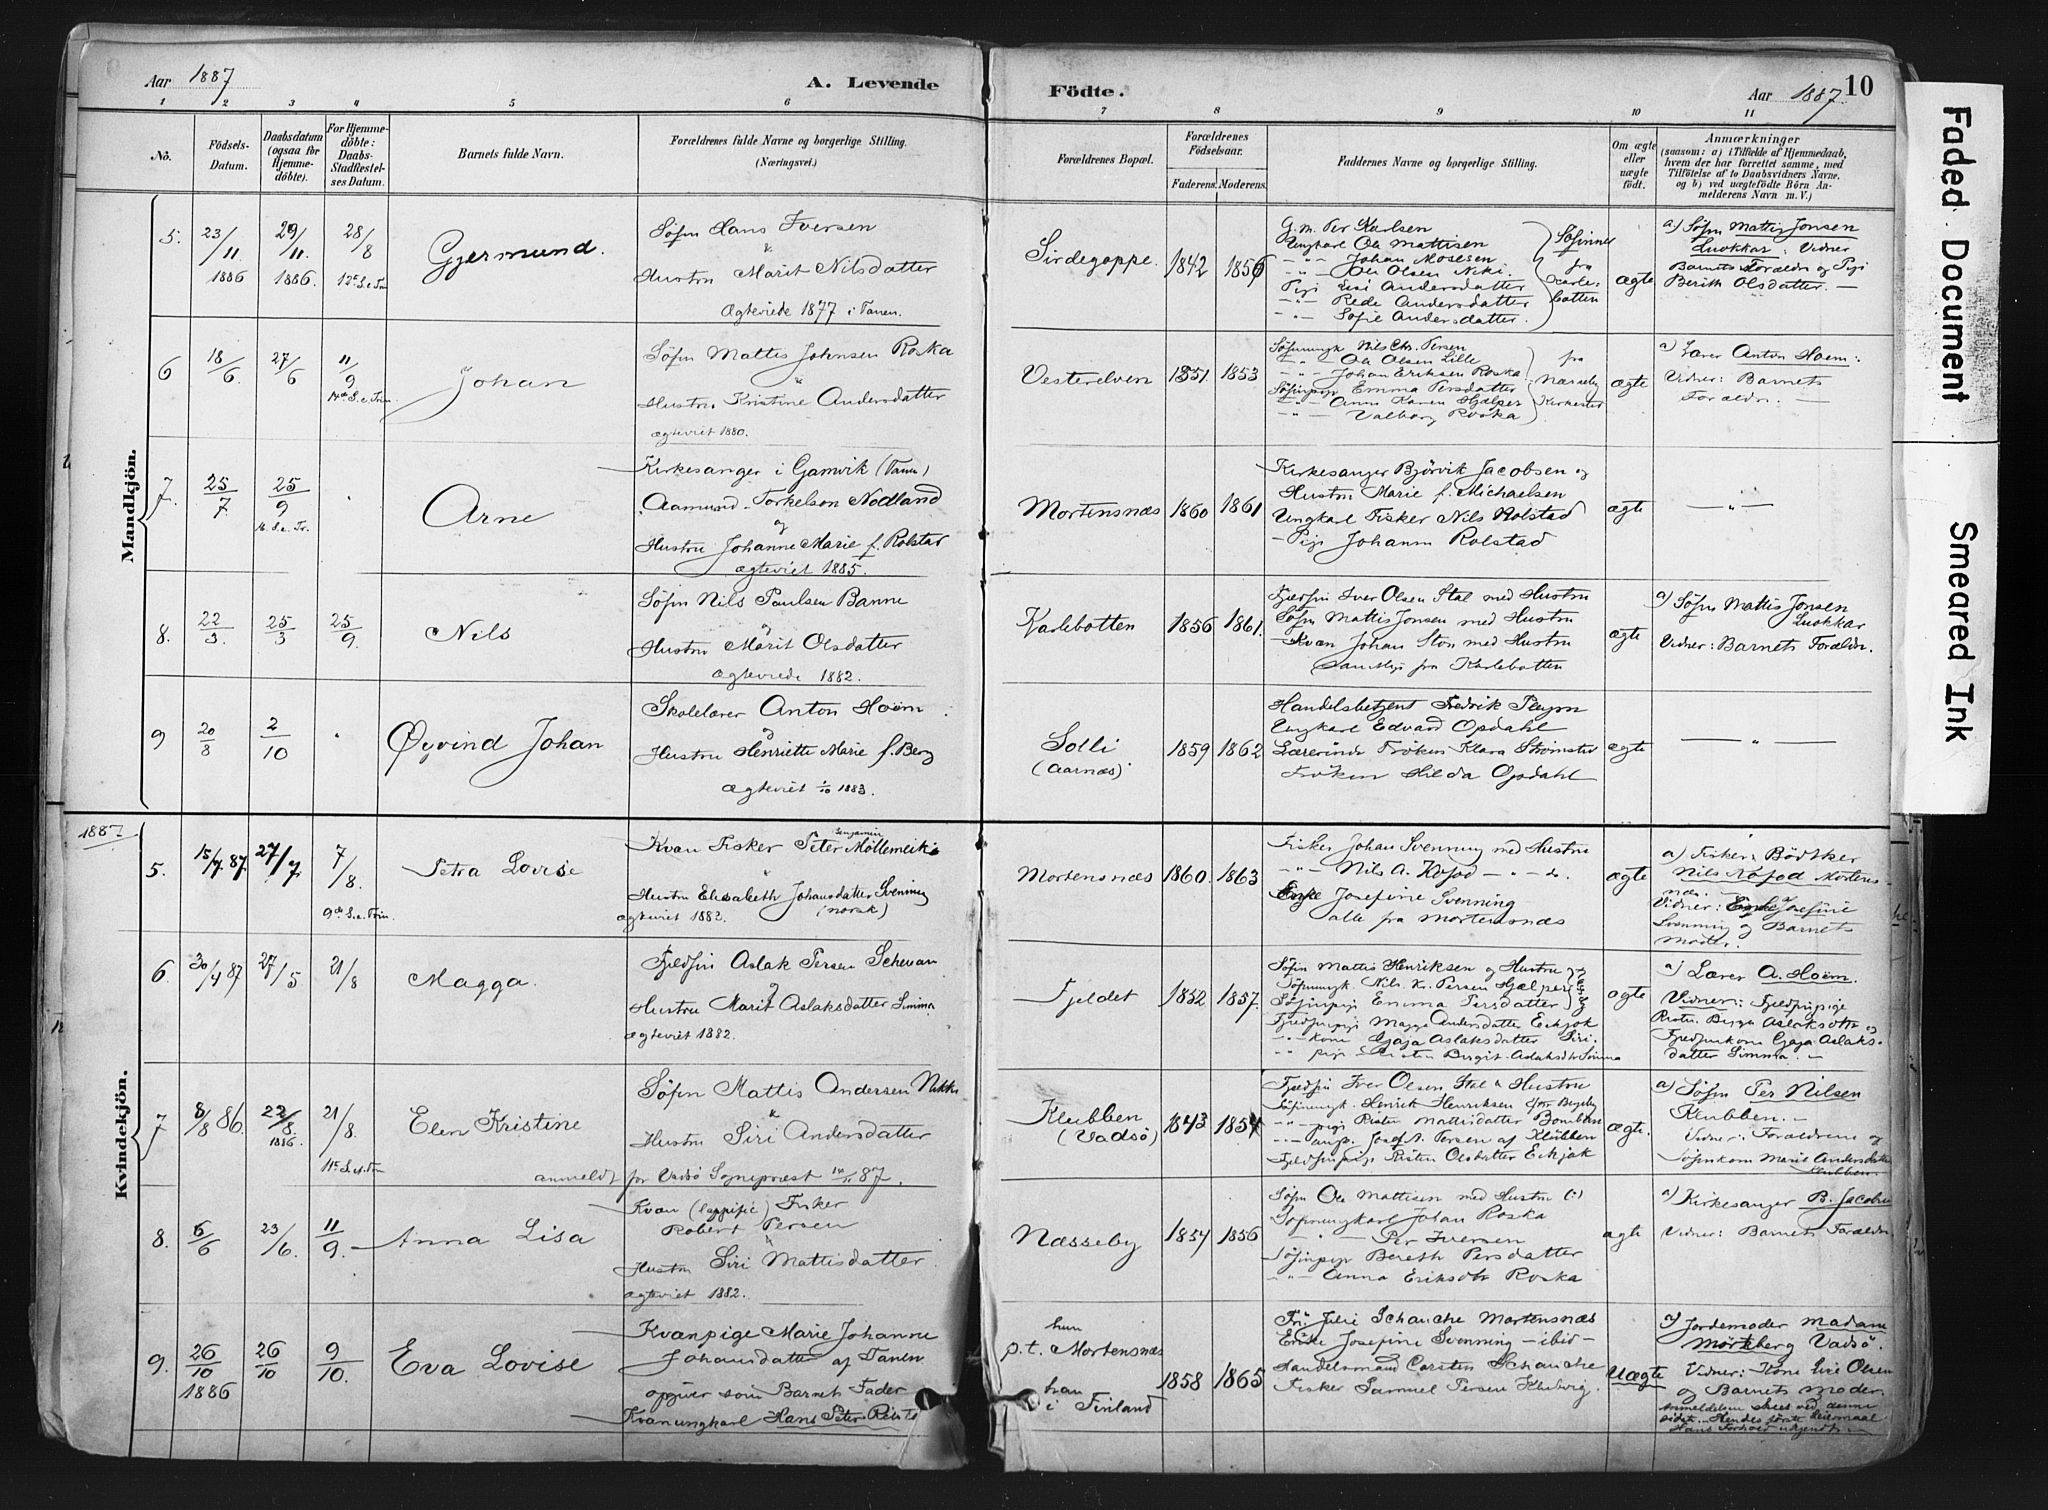 Aar 1887
A. Levende
Födte.
Aar 1887.
10
1 2 3 4 5 6 7 8 9 10 11
No.
Födsels-
Datum.
Daabsdatum
(ogsaa for
Hjemme-
döbte).
For Hjemme-
döbte:
Daabs-
Stadfæstel-
ses Datum.
Barnets fulde Navn.
Forældrenes fulde Navne og borgerlige Stilling.
(Næringsvei.)
Forældrenes Bopæl.
Forældrenes
Födselsaar.
Faderens. Moderens.
Faddernes Navne og borgerlige Stilling.
Om ægte
eller
uægte
födt.
Anmærkninger
(saasom: a) i Tilfælde af Hjemmedaab,
hvem der har forrettet samme, med
Tilföielse af to Daabsvidners Navne.
og b) ved uægtefödte Börn An-
melderens Navn m. V.)
Mandkjön.
5.
23/11 1886
29/11 1886.
28/8
Gjermund.
Söfin Hans Iversen
&
Hustru Marit Nilsdatter
Ægteviede 1877 i Tanen.
Sirdegoppe.
1842
1856
G.m. Per Karlsen
Ungkarl Ole Mattisen
" Johan Mosesen
" Ole Olsen Niki.
Pige Andersdatter
" Rede Andersdatter
" Sofie Andersdatter.
fra
Karle-
botten
ægte
a) Söfin Mattis Jonsen
Luokkar. Vidner
Barnets Forældre og Pige
Berith Olsdatter. —
6
18/6.
27/6
11/9
Johan
Söfin Mattis Johnsen Roska
Hustru Kristine Andersdatter
ægteviet 1880.
Vesterelven
1851
1853
Nils Chr. Persen
Ole Olsen Lille
Johan Eriksen Roska
Emma Persdatter
Anne Karen Hjælper
Valborg Roska
fra
Næsseby
ægte
a) Lærer Anton Hoem:
Vidner: Barnets
Forældre. —
7
25/7.
25/9
Arne
Kirkesanger i Gamvik (Tanen)
Aamund Torkelson Nodland
og
Hustru Johanne Marie f. Rolstad
ægteviet 1885.
Mortensnæs
1860
1861
Kirkesanger Björvik Jacobsen og
Hustru Marie f. Michaelsen
Ungkarl Fisker Nils Rolstad
Pige Johanne Rolstad
ægte
— " —
8.
22/3.
25/3
25/9
Nils
Söfin Nils Paulsen Banne
og
Hustru Marit Olsdatter
ægteviede 1882.
Karlebotten
1856
1861.
Fjeldfin Iver Olsen Stal med Hustru
Söfin Mattis Jonsen med Hustru
Kvæn Johan Ston med Hustru
samtlige fra Karlebotten
ægte
a) Söfin Mattis Jonsen
Luokkar
Vidner: Barnets Forældre.
9
20/8
2/10
Öyvind Johan
Skolelærer Anton Hoëm
og
Hustru Henriette Marie f. Berg
ægteviet 1/10 1883.
Solli
(Aarnæs)
1859
1862
Handelsbetjent Fredrik
Ungkarl Edvard Opdahl
Lærerinde Fröken Klara Strömsted
Fröken Hilda Opdahl
ægte
— " —
1887.
Kvindekjön.
5.
15/7.87.
27/7.
7/8.
9de S.e.Trin.
Petra Lovise
Kvæn Fisker Peter Benjamin Möllemeiki
Hustru Elisabeth Johansdatter Svenning
ægteviet 1882. (norsk)
Mortensnæs
1860.
1863
Fisker Johan Svenning med Hustru
" Nils A. Kofod — " —
Enke Josefine Svenning
alle fra Mortensnæs
ægte
a) Fisker Bödtker
Nils Kofod Mortens-
næs.
Vidner: Enke Josefine
Svenning og Barnets
Moder.
6
30/4 87
27/5
21/8
Magga.
Fjeldfin Aslak Persen Schevan
&
Hustru Marit Aslaksdatter Simma
ægteviet 1882.
Fjeldet
1852
1857.
Söfin Mattis Henriksen og Hustru
Söfinungk. Nils Kr. Persen Hjælper
Söfinpige Emma Persdatter
Fjeldfinpige Magga Andersdatter Eikjok
" kone Gaja Aslaksdatter Siri
" pige Risten Birgit Aslaksdtr Simma
ægte
a) Lærer A. Hoëm.
Vidner: Fjeldfinpige
Risten Birgit Aslaksdtr og
Fjeldfinkone Gaja Aslaks-
datter Simma. —
7
8/8 86.
22/8. 1886
21/8.
Elen Kristine
Söfin Mattis Andersen Nikki
&
Hustru Siri Andersdatter
anmeldt for Vadsö Sognepræst 87.
Klubben
(Vadsö)
1843
1854
Fjeldfin Iver Olsen Stal & Hustru
Söfinungk. Henrik Henriksen
pige Risten Mattisdatter
Josef A. Persen af Klubben
Fjeldfinpige Risten Olsdatter Eikjok
ægte.
a) Söfin Per Nilsen
Klubben. —
Vidner: Forældrene og
Söfinkone Marie Andersdatter
Klubben
8.
6/6
23/6.
11/9.
Anna Lisa
Kvæn (lappisk) Fisker
Robert Persen
&
Hustru Siri Mattisdatter
ægteviet 1882.
Næsseby
1854
1856
Söfin Ole Mattisen med Hustru
Söfinungkarl Johan Roska
" Per Iversen
Söfinpige Bereth Persdatter
" Anna Eriksdtr Roska
ægte
a) Kirkesanger B. Jacobsen
Vidner: Barnets Forældre.
9.
26/10 1886
26/10
9/10.
Eva Lovise
Kvænpige Marie Johanne
Johansdatter af Tanen
opgiver som Barnets Fader
Kvænungkarl Hans Peter
hun
p.t. Mortensnæs
han
i Finland
1858
1865
Frk. Julie Schanche Mortensnæs
Enke Josefine Svenning — ibid —
Handelsmand Carsten Schanche
Fisker Samuel Persen
Uægte
a) Jordemoder Madam
Mörkberg Vadsö.
Vidner: Kone Olsen
og Barnets Moder.
Anmeldelsen skeet ved denne
sidste. Hendes förste Leiermaal
Hans Forhold ukjendt. —
Faded Document
Smeared Ink